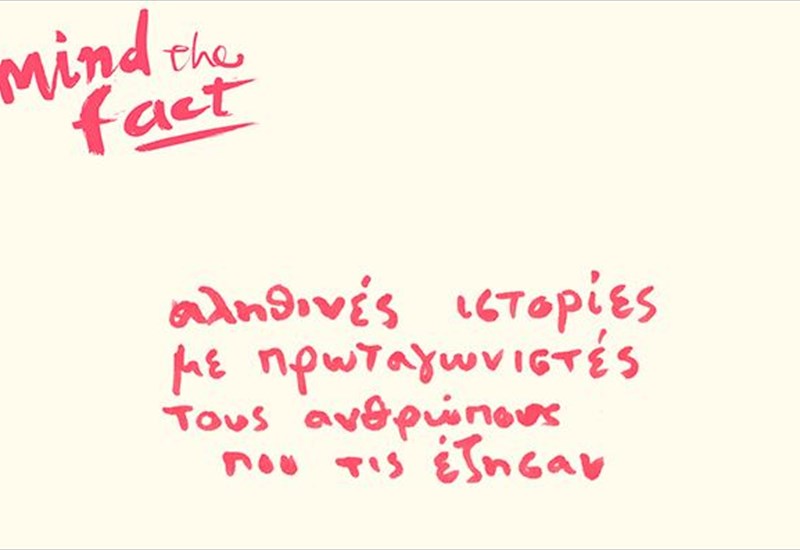 mind the
fact
αληθινές ιστορίες
με πρωταγωνιστές
τους ανθρώπους
που τις έζησαν